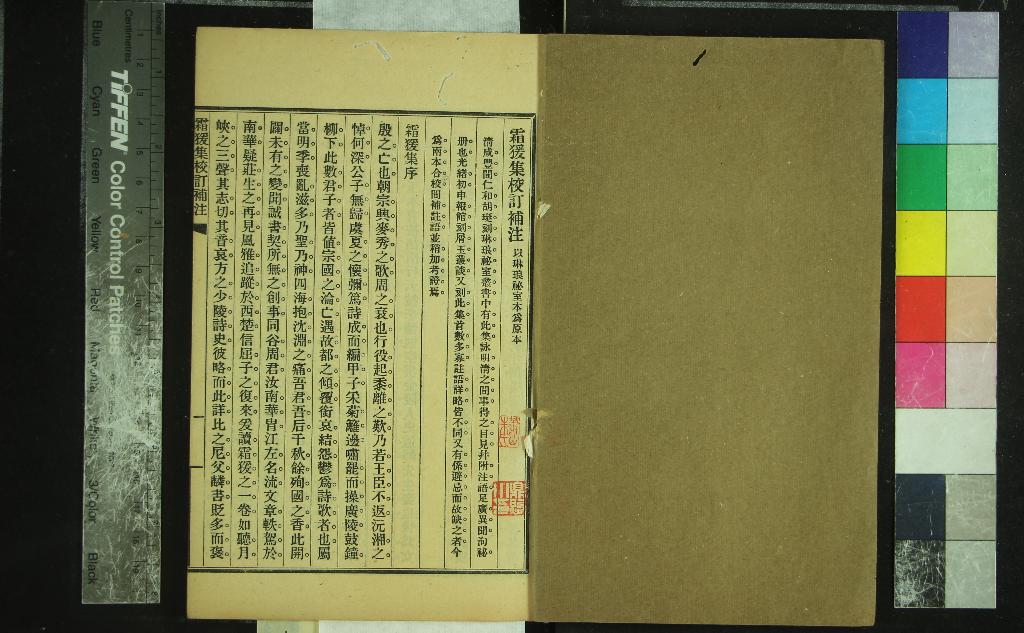 霜猨集校訂補注 以琳琅祕室本爲原本
清咸豐間仁和胡珽刻琳琅祕室叢書中有此集詠明清之間事得之目見幷附注語足廣異聞洵祕
册也光緒初申報館刻屑玉叢談又刻此集首數多寡註語詳略皆不同又有係避忌而故缺之者今
爲兩本合校間補註語並稍加考證焉
霜猨集序
殷之亡也朝宗興麥秀之歌周之衰也行役起黍離之歎乃若王臣不返沅湘之
悼何深公子無歸虞夏之懷彌篤詩成而編甲子采菊籬邊嘯罷而操廣陵鼓鐘
柳下此數君子者皆値宗國之淪亡遇故都之傾覆銜哀結怨鬱爲詩歌者也屬
當明季喪亂滋多乃聖乃神四海抱沈淵之痛吾君吾后千秋餘殉國之香此開
闢未有之變聞誠書契所無之創事同谷周君汝南華胄江左名流文章軼駕於
南華疑莊生之再見風雅追蹤於西楚信屈子之復來爰讀霜猨之一卷如聽月
峽之三聲其志切其音哀方之少陵詩史彼略而此詳比之尼父麟書貶多而褒
霜猨集校訂補注
TIFFEN Color Control Patches
Centimetres
Inches
Blue Cyan Green Yellow Red Magenta White 3/Color Black